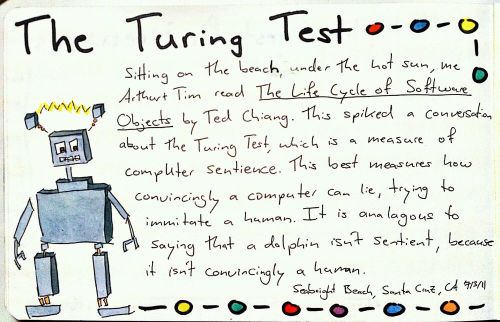 The Turing Test
Sitting on the beach, under the hot sun, me
Arthur + Tim read The Life Cycle of Software
Objects by Ted Chiang. This spiked a conversation
about the Turing Test, which is a measure of
computer sentience. This best measures how
convincingly a computer can lie, trying to
immitate a human. It is analagous to
saying that a dolphin isn't sentient, because
it isn't convincingly a human.
Seabright Beach, Santa Cruz, CA 9/3/11